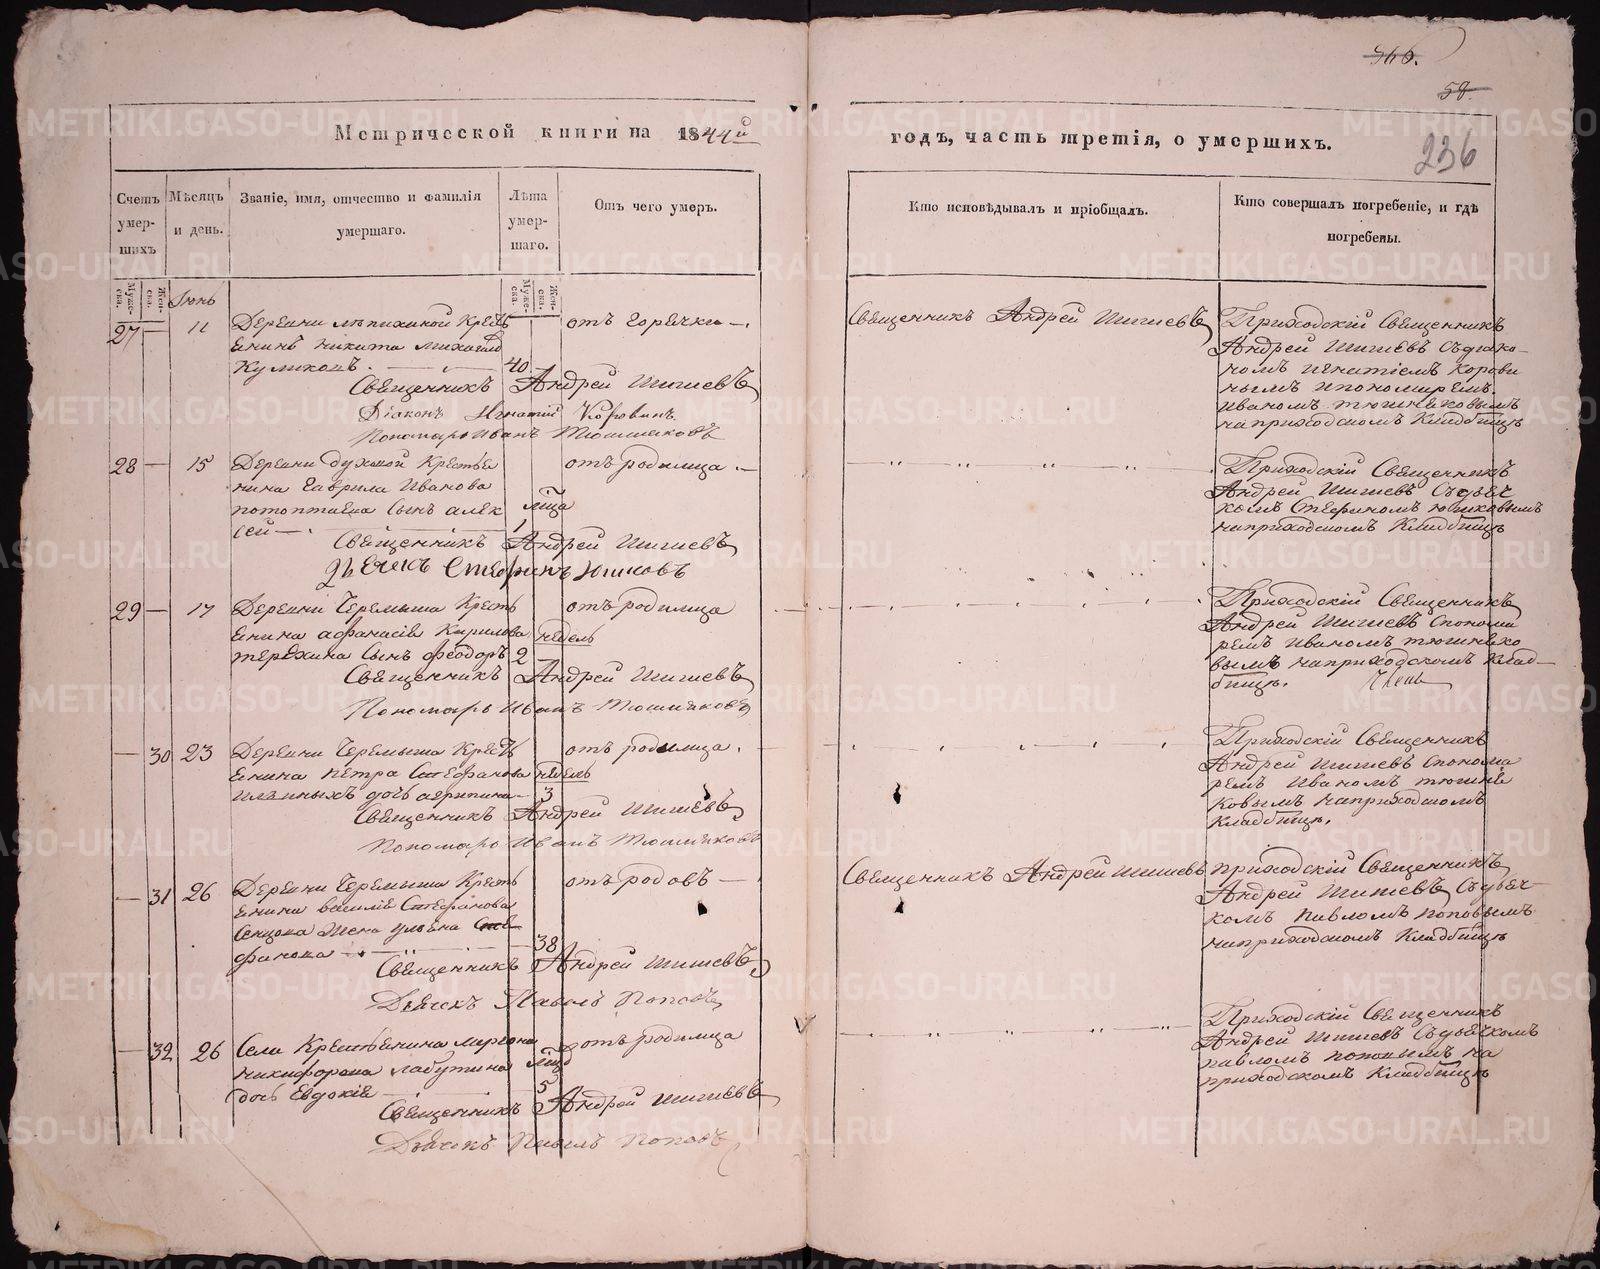 366.
58
236
Метрической книги на 1844й
годъ, часть третія, о умершихъ.
Счетъ умер-шихъ
Мѣсяцъ и день.
Званіе, имя, отчество и фамилія умершаго.
Лѣта умер-шаго.
Отъ чего умеръ.
Кто исповѣдывалъ и пріобщалъ.
Кто совершалъ погребеніе, и гдѣ погребены.
Муже-ска.
Жен-ска.
Муже-ска.
Жен-ска.
Іюнь
27 — 11
Деревни Кресть
янинъ Никита Михайло
Куликовъ. 40
отъ горячки —
Священникъ Андрей Шишевъ
Діаконъ Игнатій Коровинъ
Пономарь Иванъ Тюшняковъ
Священникъ Андрей Шишевъ
Приходскій Священникъ
Андрей Шишевъ съ діако-
номъ Игнатіемъ Корови
нымъ и пономаремъ
Иваномъ Тюшняковымъ
на приходскомъ Кладбищѣ
28 — 15
Деревни Духовой Крестья
нина Гаврила Иванова
Потоптаева сынъ Алек
сѣй —
мѣсяца
1
отъ родимца —
Священникъ Андрей Шишевъ
Дьячекъ Стефанъ Юшковъ
Приходскій Священникъ
Андрей Шишевъ съ дьяч
комъ Стефаномъ Юшковымъ
на приходскомъ Кладбищѣ
29 — 17
Деревни Черемыша Кресть
янина Афанасія Кирилова
Терехина сынъ Феодоръ
недель
2
отъ родимца
Священникъ Андрей Шишевъ
Пономарь Иванъ Тюшняковъ
Приходскій Священникъ
Андрей Шишевъ с понома
ремъ Иваномъ Тюшняко
вымъ на приходскомъ Клад-
бищѣ.
— 30 23
Деревни Черемыша Кресть
янина Петра Стефанова
Ильиныхъ дочь Агрипина
недель
3
отъ родимца.
Священникъ Андрей Шишевъ
Пономарь Иванъ Тюшняковъ
Приходскій Священникъ
Андрей Шишевъ с понома
ремъ Иваномъ Тюшня
ковымъ на приходскомъ
Кладбищѣ.
— 31 26
Деревни Черемыша Кресть
янина Василія Стефанова
Сенцова Жена Ульяна Сте
фанова — 38
отъ родовъ —
Священникъ Андрей Шишевъ
Дьячекъ Павелъ Поповъ
Священникъ Андрей Шишевъ
Приходскій Священникъ
Андрей Шишевъ съ дьяч-
комъ Павломъ Поповымъ
на приходскомъ Кладбищѣ
— 32 26
Села Крестьянина Миропа
Никифорова Лабутина
дочь Евдокія
5
отъ родимца
Священникъ Андрей Шишевъ
Дьячекъ Павелъ Поповъ
Приходскій Священникъ
Андрей Шишевъ съ дьячкомъ
Павломъ Поповымъ на
приходскомъ Кладбищѣ
METRIKI.GASO-URAL.RU